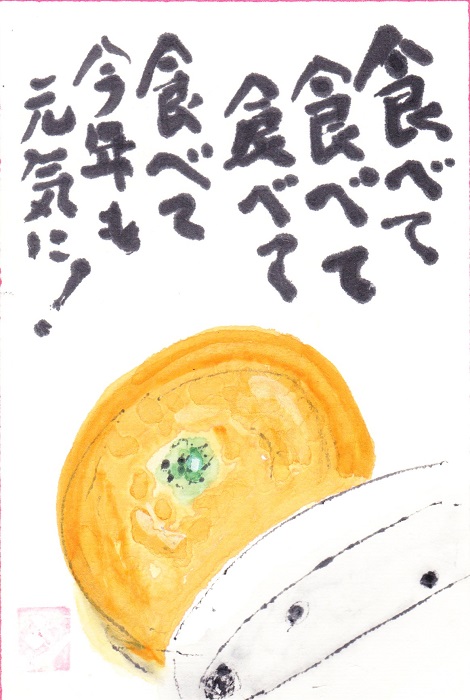 食べて
食べて
食べて
食べて
今年も
元気に!